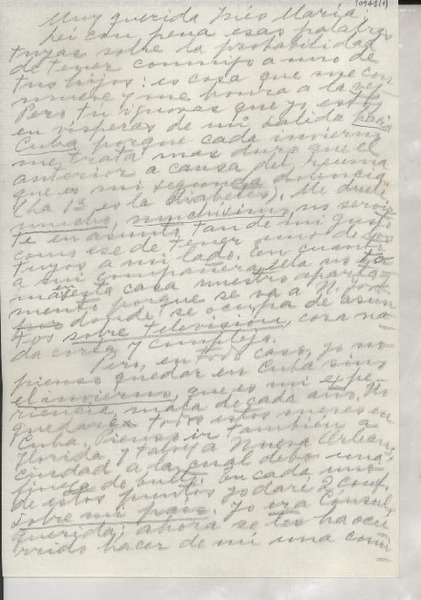 10948(1)
Muy querida Inés María,
leí con pena esas palabras
tuyas sobre la probabilidad
de tener conmigo a uno de
tus hijos: es cosa que me con
mueve y me honra a la vez.
Pero tú ignoras que yo estoy
en vísperas de mi salida hacia
Cuba porque cada invierno
me trata mas duro que el
anterior a causa del reuma
que es mi segunda dolencia
(la 1a es la diabetes). Me duele
mucho, muchísimo, no servir
te en asunto tan de mi gusto
como ese de tener uno de los
tuyos a mi lado. En cuanto
a mi compañera, ella no to
mará en esta casa nuestro aparta
mento porque se va a N. York
donde se ocupa de asun
tos sobre televisión, cosa na
da corta y compleja.
Pero, en todo caso, yo no
pienso quedar en Cuba sino
el invierno, que es mi expe
riencia mala de cada año. No
quedaré todos estos meses en
Cuba, pienso ir tambien a
Florida y tal vez a Nueva Orleans,
ciudad a la cual debo una
fineza de bulto. En cada uno
de estos puntos yo daré 2 conf.
sobre mi país. Yo era Cónsul,
querida; ahora se les ha ocu
rrido hacer de mí una como